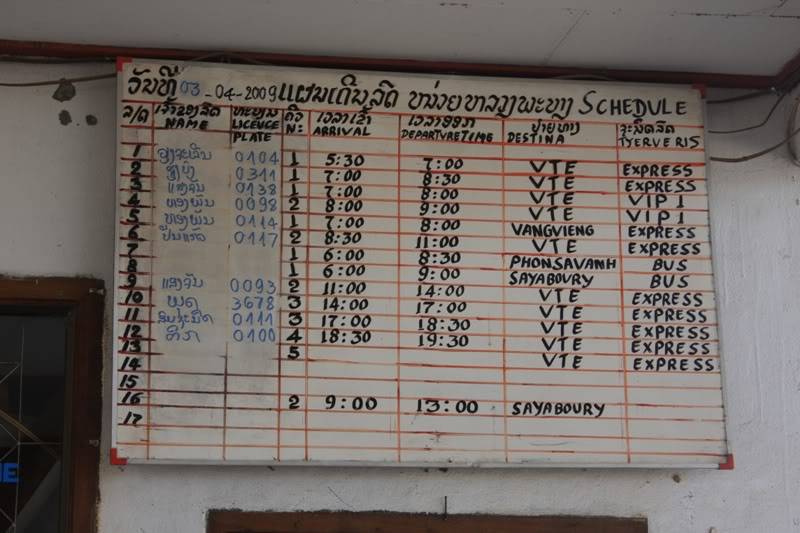 ວັນທີ 03-04-2009 ແຜນເດີນລົດ ຫນ່ວຍຫລວງພະບາງ SCHEDULE
ລ/ດ ເຈົ້າຂອງລົດ ທະບຽນ ຄິວ ເວລາເຂົ້າ ເວລາອອກ ປາຍທາງ
NAME LICENCE PLATE N: ARRIVAL DEPARTURE TIME DESTINA TYERVERIS
1 0104 1 5:30 7:00 VTE EXPRESS
2 0311 1 7:00 8:30 VTE EXPRESS
3 ແສງຈັນ 0138 1 7:00 8:00 VTE VIP1
4 ທອງພັນ 0098 2 8:00 9:00 VTE VIP1
5 ທອງພັນ 0114 1 7:00 8:00 VANGVIENG EXPRESS
6 0117 2 8:30 11:00 VTE EXPRESS
7 1 6:00 8:30 PHONSAVANH BUS
8 1 6:00 9:00 SAYABOURY BUS
9 ແສງຈັນ 0093 2 11:00 14:00 VTE EXPRESS
10 3678 3 14:00 17:00 VTE EXPRESS
11 0111 3 17:00 18:30 VTE EXPRESS
12 0100 4 18:30 19:30 VTE EXPRESS
13 5 VTE EXPRESS
14
15
16 2 9:00 13:00 SAYABOURY
17